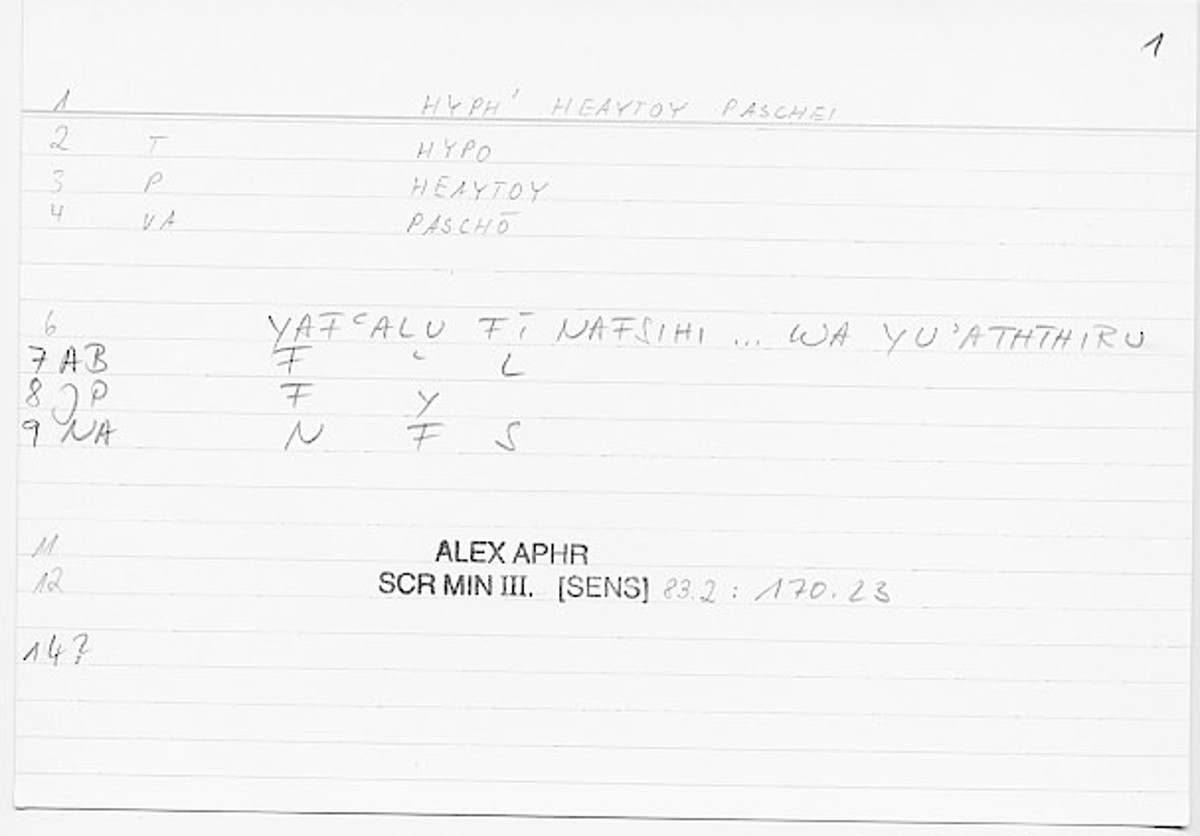 1
1 HYPH' HEAYTOY PASCHEI
2 T HYPO
3 P HEAYTOY
4 VA PASCHŌ
6 YAFʿALU FĪ NAFSIHI ... WA YU'ATHTHIRU
7 AB F ʿ L
8 JP F Y
9 NA N F S
11 ALEX APHR
12 SCR MIN III. [SENS] 83.2 : 170.23
14?